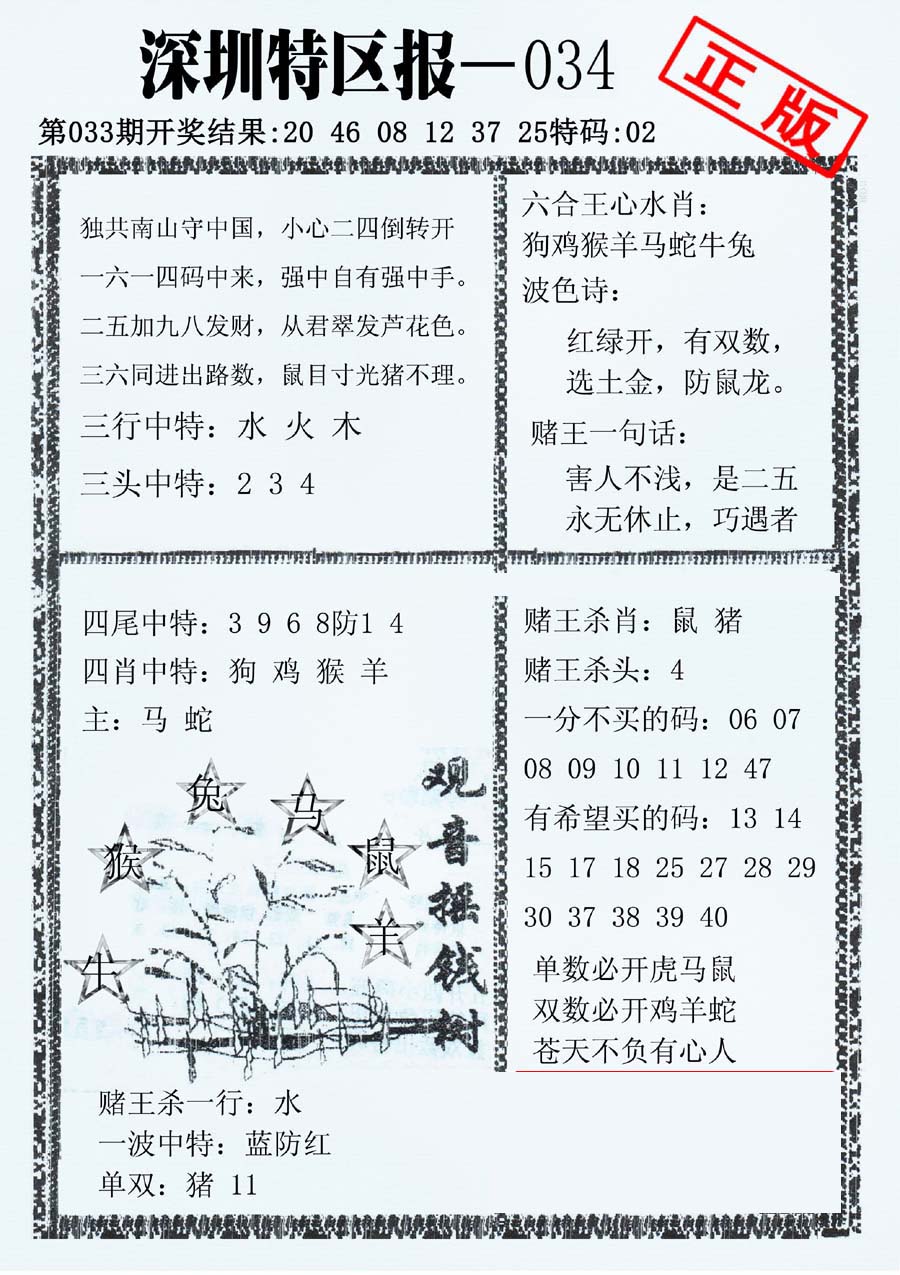 深圳特区报—034
正版
第033期开奖结果:20 46 08 12 37 25特码:02
独共南山守中国，小心二四倒转开
一六一四码中来，强中自有强中手。
二五加九八发财，从君翠发芦花色。
三六同进出路数，鼠目寸光猪不理。
三行中特：水 火 木
三头中特：2 3 4
六合王心水肖：
狗鸡猴羊马蛇牛兔
波色诗：
红绿开，有双数，
选土金，防鼠龙。
赌王一句话：
害人不浅，是二五
永无休止，巧遇者
四尾中特：3 9 6 8防1 4
四肖中特：狗 鸡 猴 羊
主：马 蛇
兔
马
猴
鼠
羊
牛
观音摇钱树
赌王杀一行：水
一波中特：蓝防红
单双：猪 11
赌王杀肖：鼠 猪
赌王杀头：4
一分不买的码：06 07
08 09 10 11 12 47
有希望买的码：13 14
15 17 18 25 27 28 29
30 37 38 39 40
单数必开虎马鼠
双数必开鸡羊蛇
苍天不负有心人